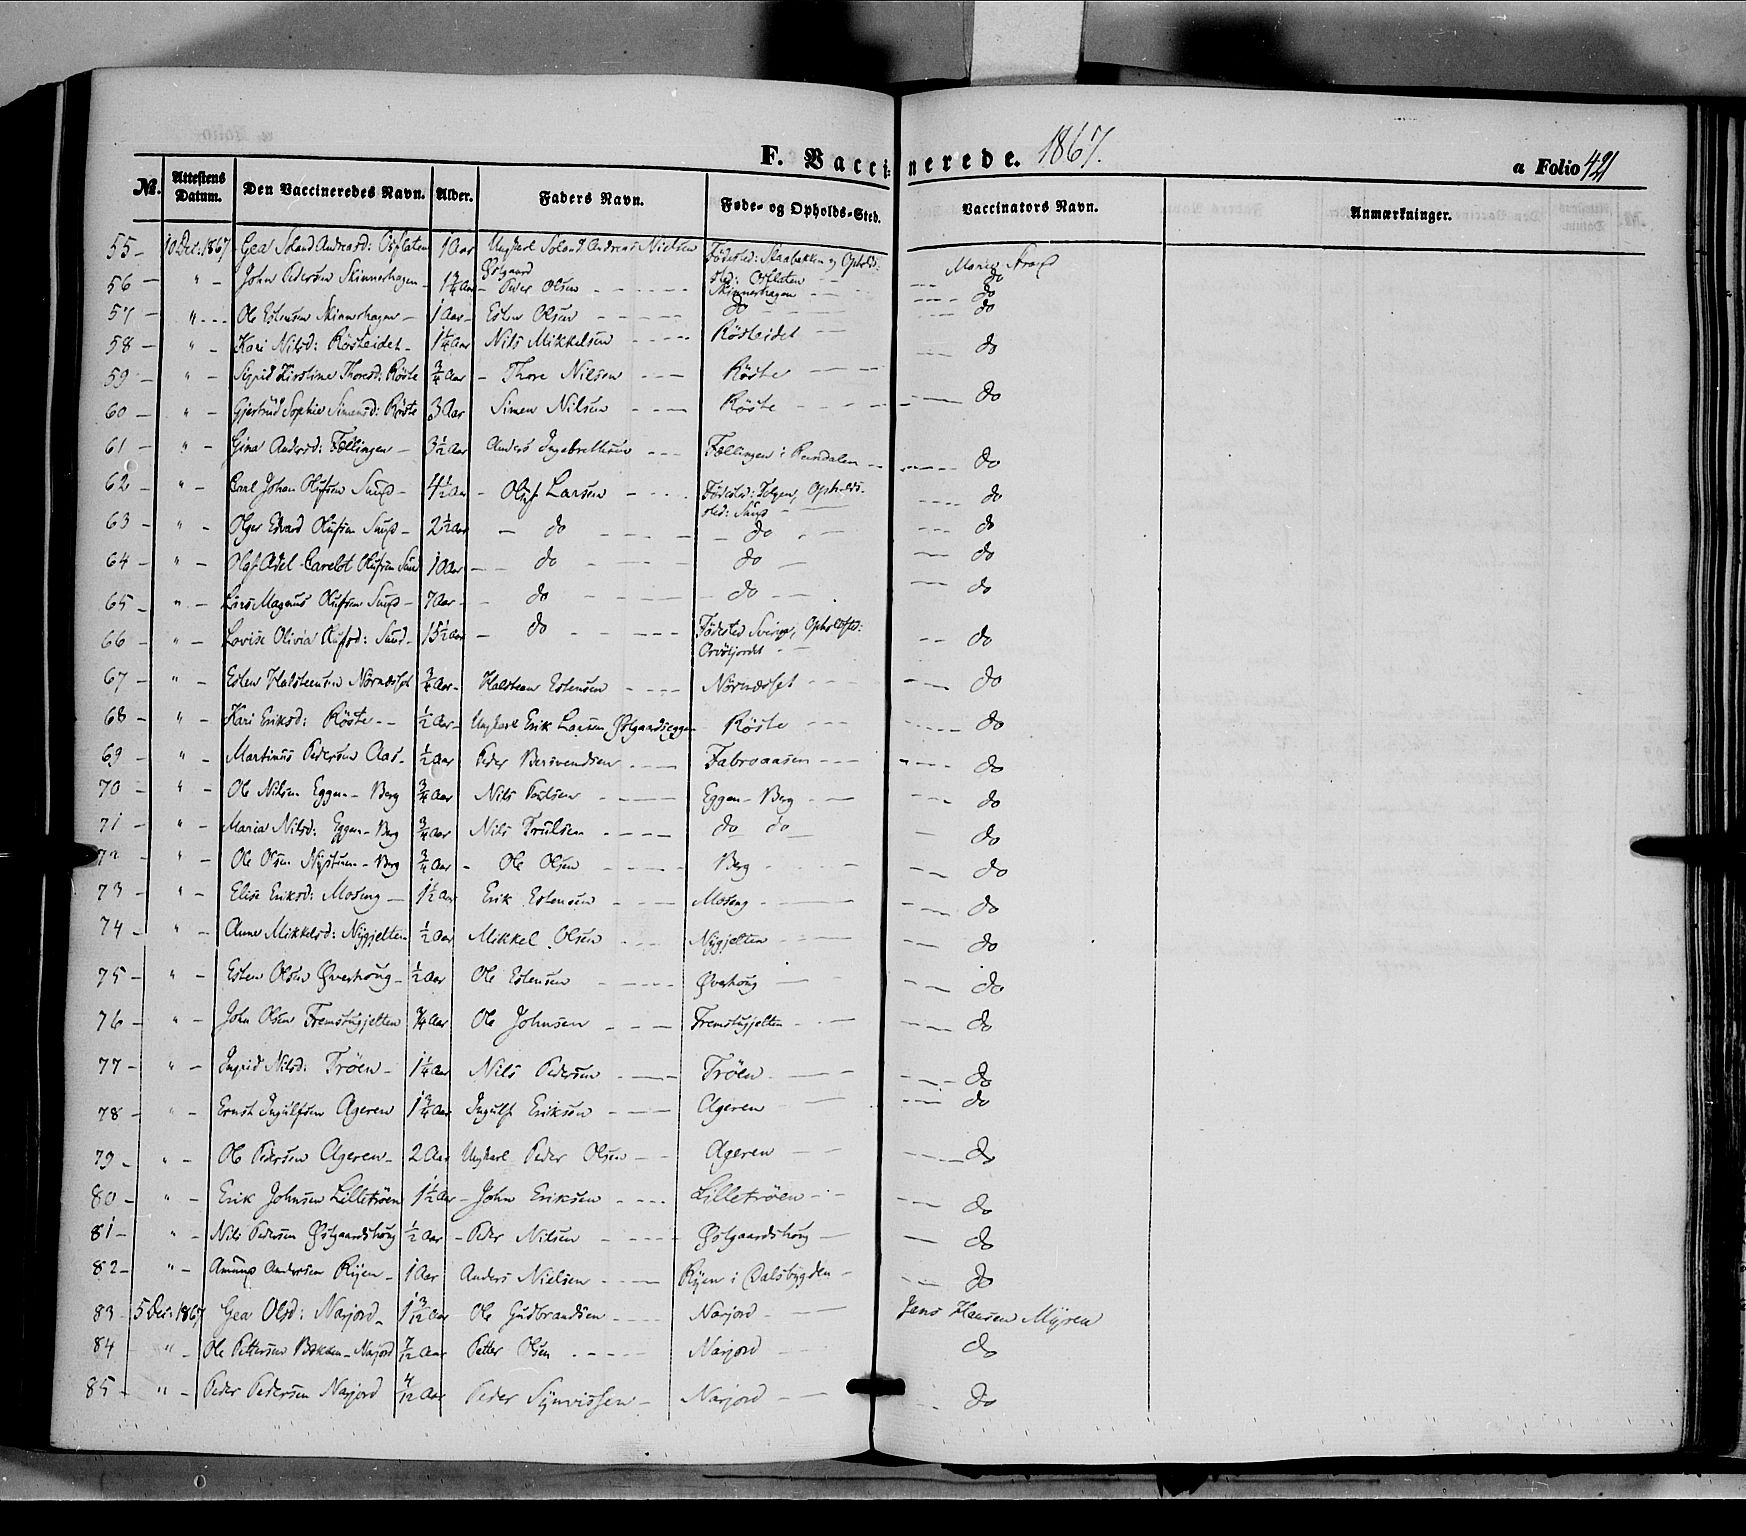 F. Vaccinerede. 1867.
a Folio 421
№. Attestens Datum. Den Vaccineredes Navn. Alder. Faders Navn. Føde- og Opholds-Sted. Vaccinators Navn. Anmærkninger.
55 10 Dec. 1867 Gea 1 Aar Ungkarl Andreas Nielsen Fødested: og Opholds- Marie
Østgaard sted:
56 " John Pedersen Skinnerhagen 1¾ Aar Peder Olsen Skinnerhagen do
57 " Ole Estensen Skinnerhagen 1 Aar Esten Olsen do do
58 " Kari Nilsd: Røsteidet 1¼ Aar Nils Mikkelsen Røsteidet do
59 " Sigrid Kirstine Thoresd: Røste ¾ Aar Thore Nilsen Røste
60 " Gjertrud Sophie Simensd: Røste 3 Aar Simen Nilsen Røste do
61 " Gina Andersd: Fællingen 3½ Aar Anders Ingebrethsen Fællingen i Rendalen do
62 " Carl Johan Olufsen Sund 4½ Aar Oluf Larsen Fødested: Tolgen, Opholds- do
sted: Sund
63 " Olger Edvard Olufsen Sund 2½ Aar do do do
64 " Olaf Axel Olufsen Sund 1 Aar do do do
65 " Lars Magnus Olufsen Sund 7 Aar do do do
66 " Lovise Olivia Olufsd: Sund 15½ Aar do Fødested Sverige, Opholdsted: do
67 " Esten Halsteensen Nørnæsset ¾ Aar Halsteen Estensen Nørnæsset do
68 " Kari Eriksd: Røste ½ Aar Ungkarl Erik Larsen Østgaardseggen Røste do
69 " Martinus Pedersen Aas ½ Aar Peder Bersvendsen Fabroaasen do
70 " Ole Nilsen Eggen-Berg ¾ Aar Nils Eggen-Berg do
71 " Maria Nilsd: Eggen-Berg ¾ Aar Nils Trulsen do do do
72 " Ole Olsen Nystuen-Berg ¾ Aar Ole Olsen Berg do
73 " Elise Eriksd: Moseng 1½ Aar Erik Estensen Moseng do
74 " Anne Mikkelsd: Nygjelten ½ Aar Mikkel Olsen Nygjelten do
75 " Esten Olsen Øverhoug ½ Aar Ole Estensen Øverhoug do
76 " John Olsen Fremstugjelten ¾ Aar Ole Johnsen Fremstugjelten do
77 " Ingrid Nilsd: Trøen 1¼ Aar Nils Pedersen Trøen do
78 " Ernst Ingulfsen Ageren 1¾ Aar Ingulf Eriksen Ageren do
79 " Ole Pedersen Ageren 2 Aar Ungkarl Peder Olsen Ageren do
80 " Erik Johnsen Lilletrøen 1½ Aar John Eriksen Lilletrøen do
81 " Nils Pedersen Østgaardshoug ½ Aar Peder Nilsen Østgaardshoug do
82 " Amund Andersen Ryen 1 Aar Anders Nielsen Ryen i Dalsbygden do
83 5 Dec. 1867 Gea Olsd: Narjord 1 3/12 Aar Ole Gudbrandsen Narjord Jens Hansen Myren
84 " Ole Pettersen Bakken-Narjord 7/12 Aar Petter Olsen Narjord do
85 " Peder Pedersen Narjord 4/12 Aar Peder Synvissen Narjord do